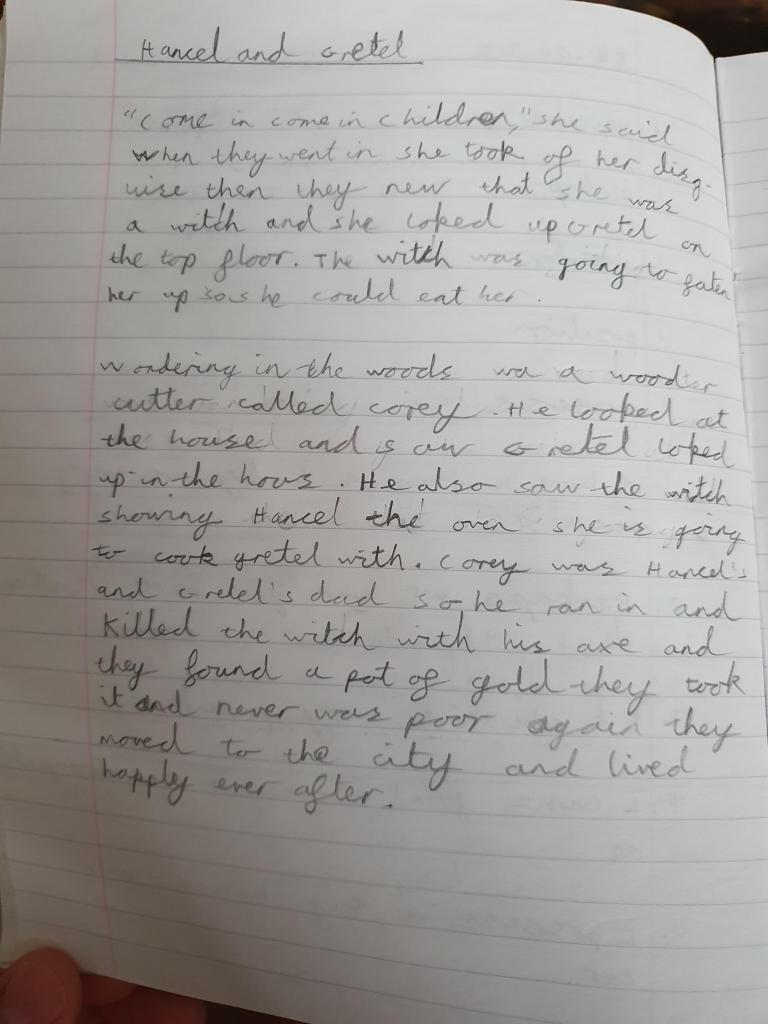 Hancel and Gretel
"Come in come in children," she said
when they went in she took of her disg-
uise then they new that she was
a witch and she loked up Gretel on
the top floor. The witch was going to faten
her up so she could eat her.
Wondering in the woods wa a wooder
cutter called corey. He looked at
the house and saw Gretel loked
up in the hous. He also saw the witch
showing Hancel the oven she is going
to cook gretel with. Corey was Hancel's
and Gretel's dad so he ran in and
killed the witch with his axe and
they found a pot of gold they took
it and never was poor again they
moved to the city and lived
happly ever after.